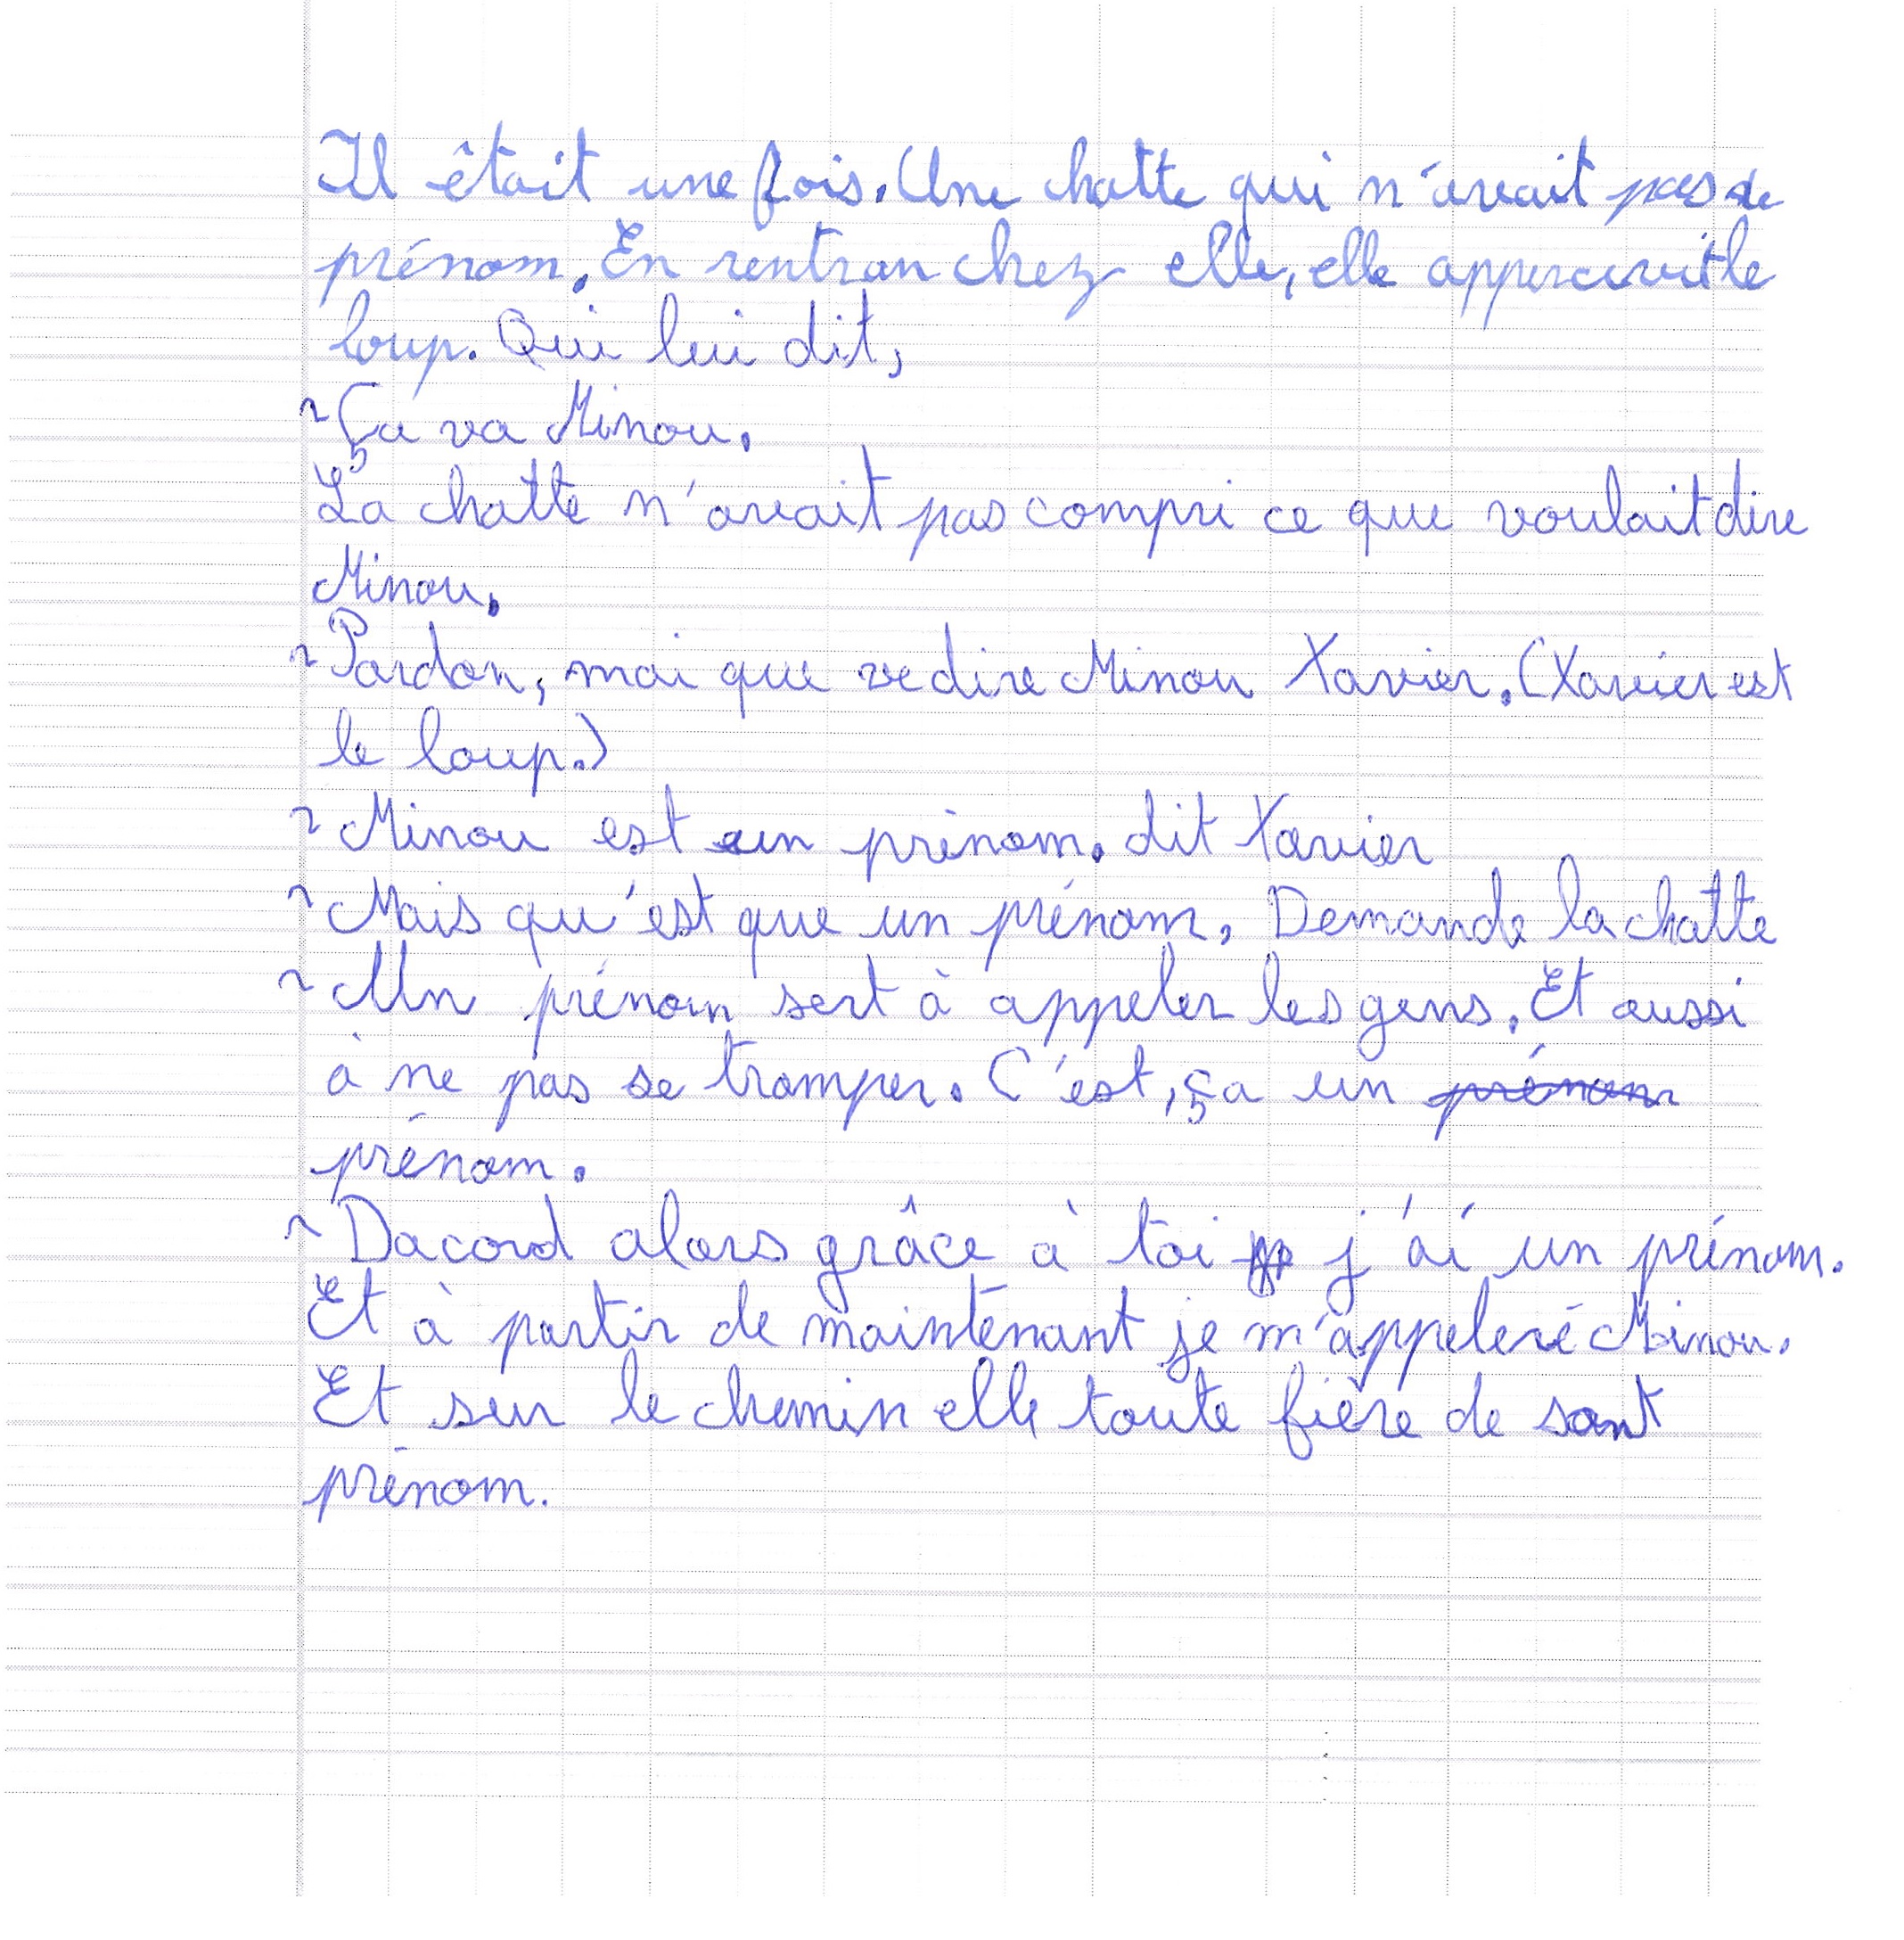 Il êtait une fois. Une chatte qui n'avait pas de
prénom. En rentran chez elle, elle appercevit le
loup. Qui lui dit,
~ Ça va Minou.
La chatte n'avait pas compri ce que voulait dire
Minou.
~ Pardon, mai que ve dire Minou Xavier. (Xavier est
le loup.)
~ Minou est un prénom. dit Xavier
~ Mais qu'est que un prénom. Demande la chatte
~ Un prénom sert à appeler les gens. Et aussi
à ne pas se tromper. C'est, ça un prénom
prénom.
~ Dacord alors grâce à toi j'ai un prénom.
Et à partir de maintenant je m'appeleré Minou.
Et sur le chemin elle toute fière de sont
prénom.